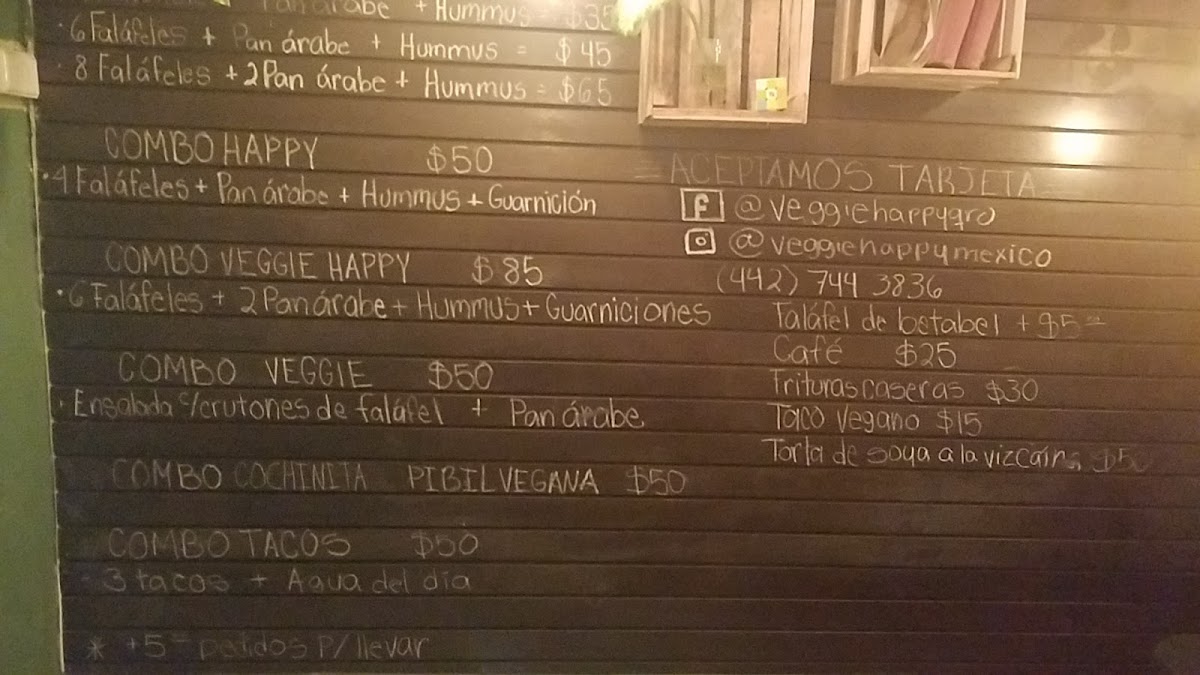 Pan árabe + Hummus = $35
· 6 Faláfeles + Pan árabe + Hummus = $45
· 8 Faláfeles + 2 Pan árabe + Hummus = $65
COMBO HAPPY $50
· 4 Faláfeles + Pan árabe + Hummus + Guarnición
COMBO VEGGIE HAPPY $85
· 6 Faláfeles + 2 Pan árabe + Hummus + Guarniciones
COMBO VEGGIE $50
· Ensalada c/crutones de faláfel + Pan árabe
COMBO COCHINITA PIBIL VEGANA $50
COMBO TACOS $50
· 3 tacos + Agua del día
* +5= pedidos P/llevar
= ACEPTAMOS TARJETA =
f @veggiehappyqro
@veggiehappymexico
(442) 744 3836
Faláfel de betabel + $5=
Café $25
Frituras caseras $30
Taco vegano $15
Torta de soya a la vizcaína